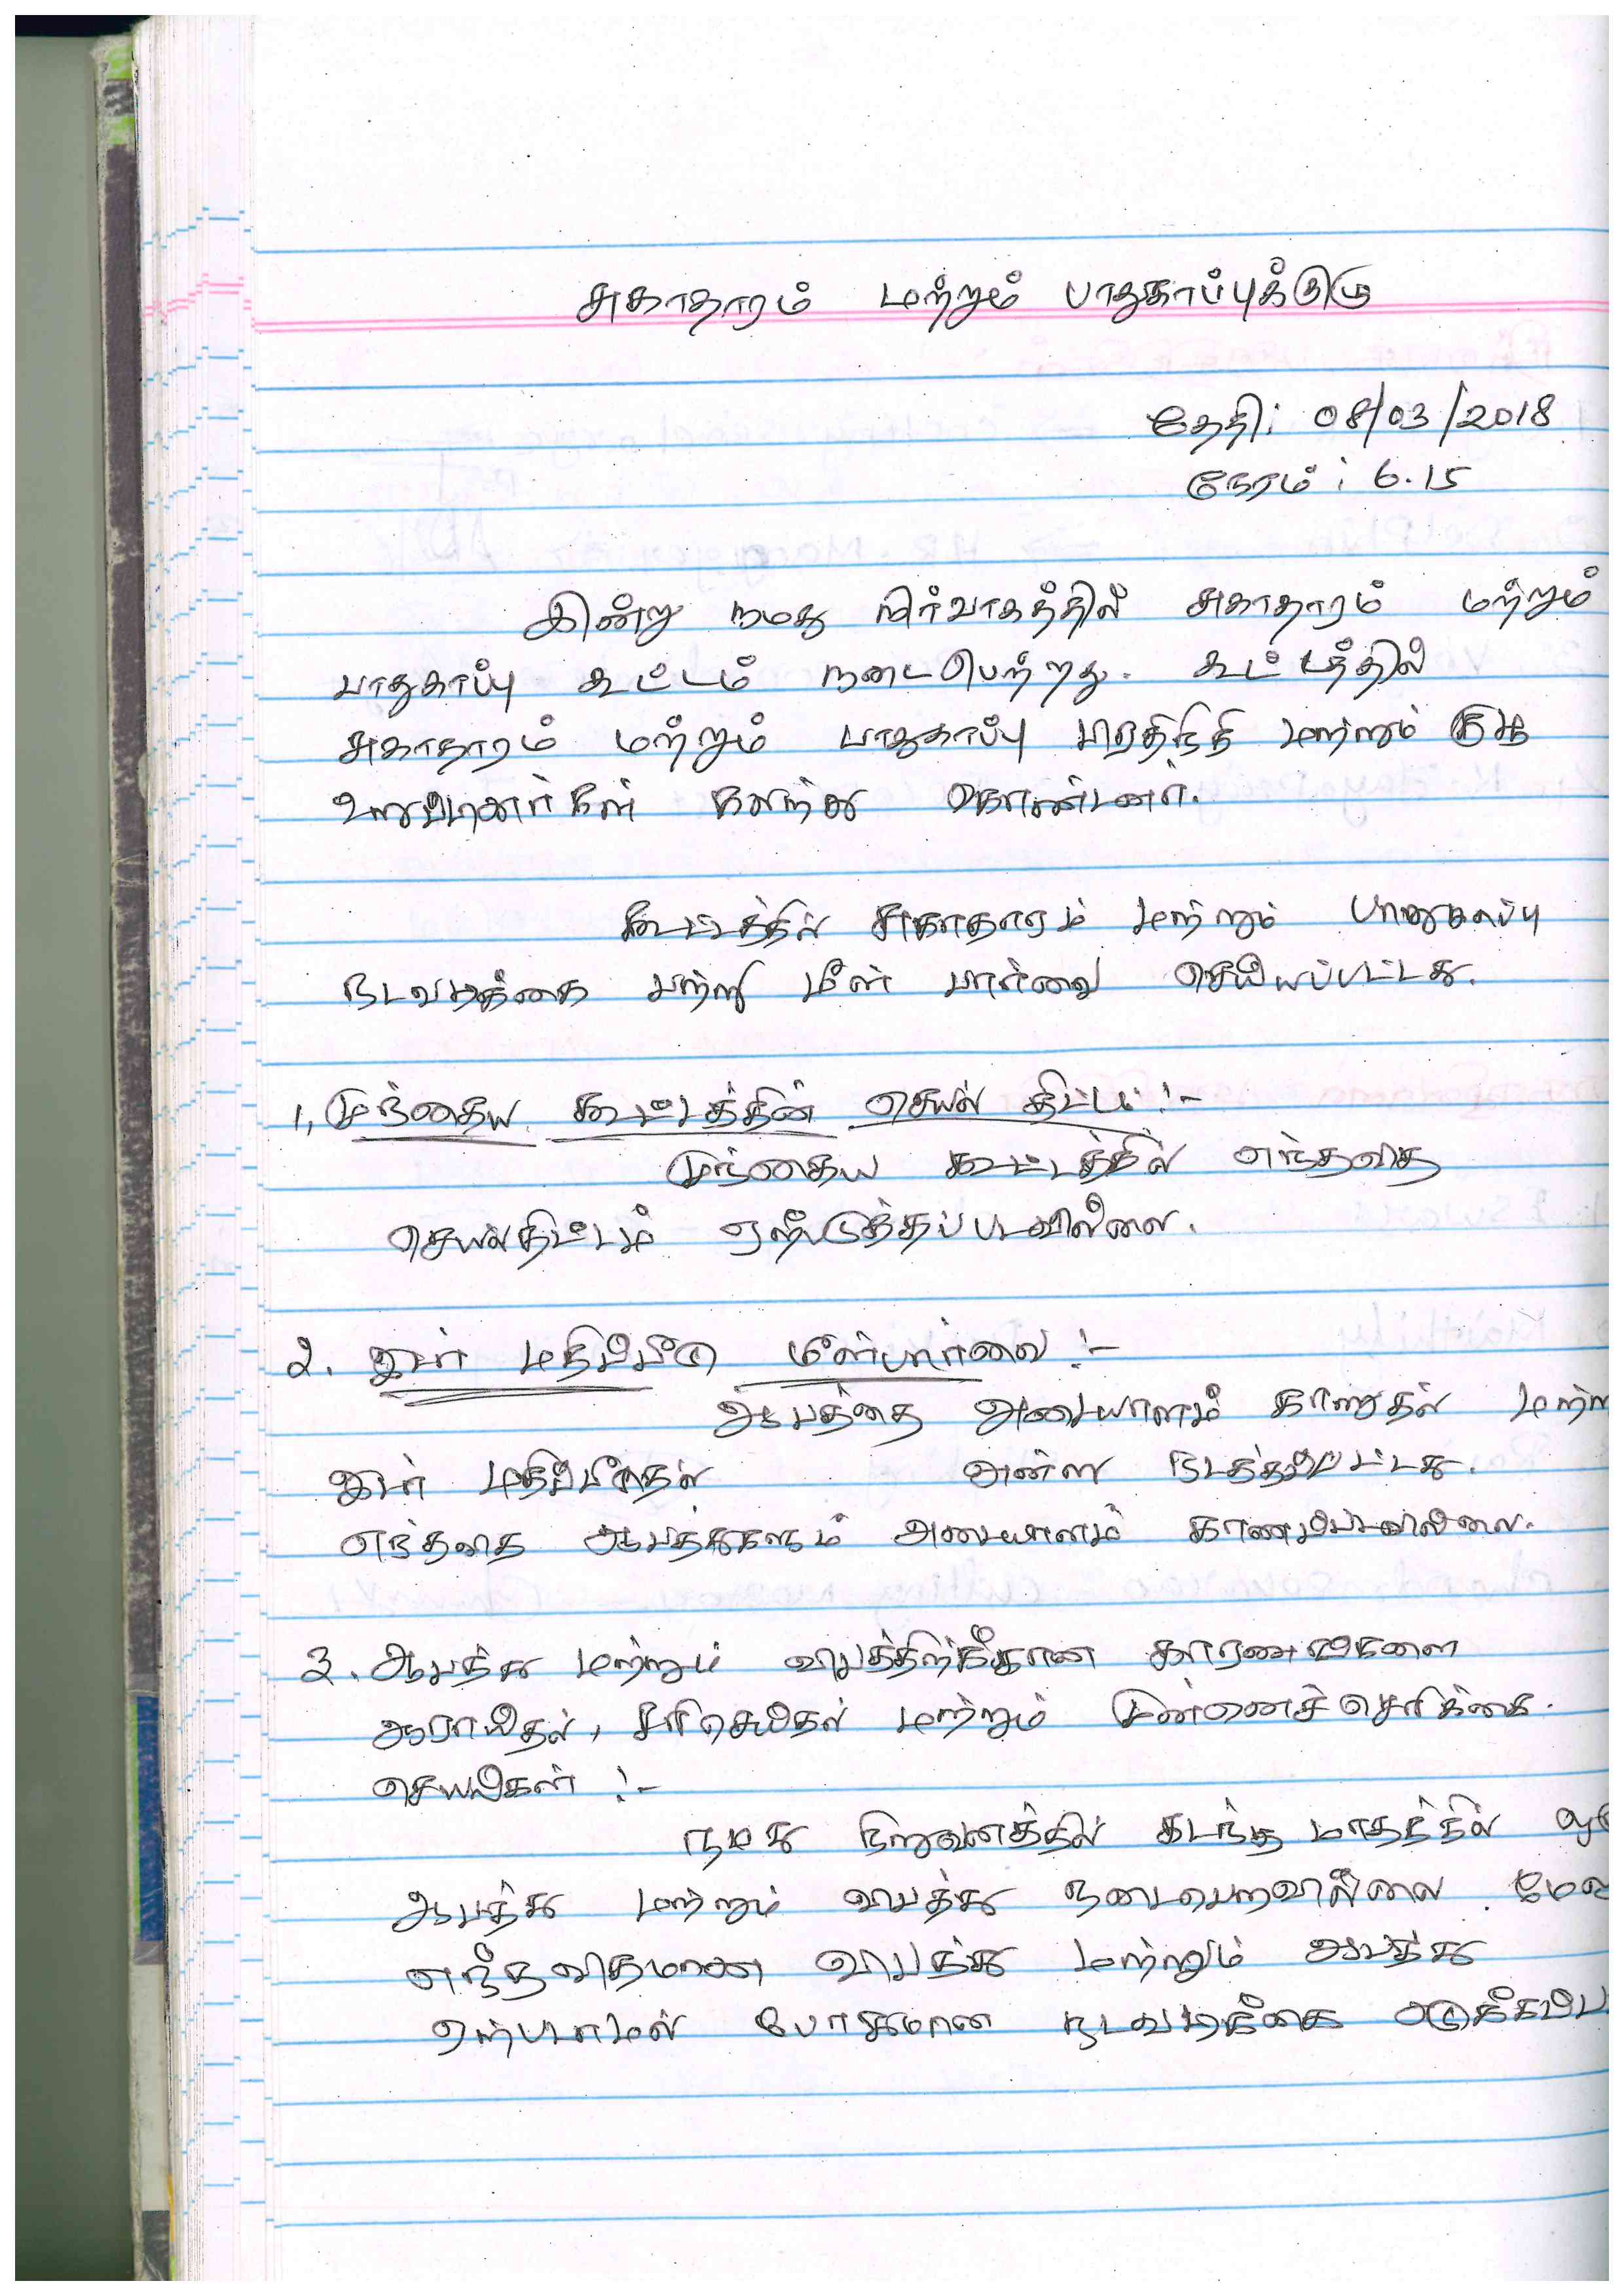 சுகாதாரம் மற்றும் பாதுகாப்புக்குழு
தேதி: 08/03/2018
நேரம் : 6.15
இன்று நமது நிர்வாகத்தில் சுகாதாரம் மற்றும்
பாதுகாப்பு கூட்டம் நடைபெற்றது. கூட்டத்தில்
சுகாதாரம் மற்றும் பாதுகாப்பு பிரதிநிதி மற்றும் குழு
உறுப்பினர்கள் கலந்து கொண்டனர்.
கூட்டத்தில் சுகாதாரம் மற்றும் பாதுகாப்பு
நடவடிக்கை பற்றி மீள் பார்வை செய்யப்பட்டது.
1, முந்தைய கூட்டத்தின் செயல் திட்டம் :-
முந்தைய கூட்டத்தில் எந்தவித
செயல்திட்டம் ஏற்படுத்தப்படவில்லை.
2. இடர் மதிப்பீடு மீள்பார்வை :-
ஆபத்தை அடையாளம் காணுதல்
இடர் மதிப்பீடுதல் நடத்தப்பட்டது.
ஆபத்துகளும் அடையாளம் காணப்படவில்லை.
3. ஆபத்து மற்றும் விபத்திற்கான காரணங்களை
ஆராய்தல், சரிசெய்தல் மற்றும் முன்னெச்செரிக்கை
செயல்கள் :-
நமது நிறுவனத்தில் கடந்த மாதத்தில்
ஆபத்து மற்றும் விபத்து நடைபெறவில்லை.
எந்தவிதமான விபத்து மற்றும் ஆபத்து
ஏற்படாமல் போதுமான நடவடிக்கை